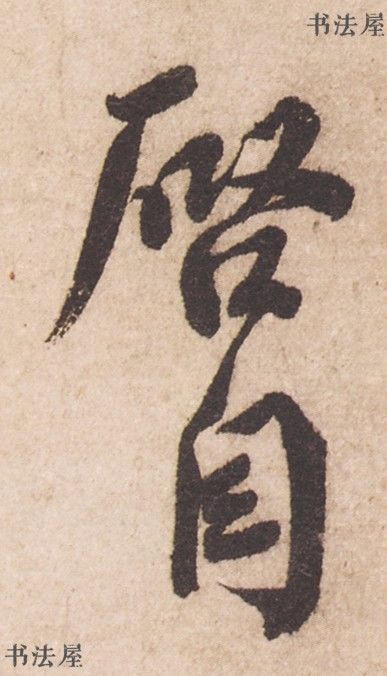 书法屋
啓
自
书法屋